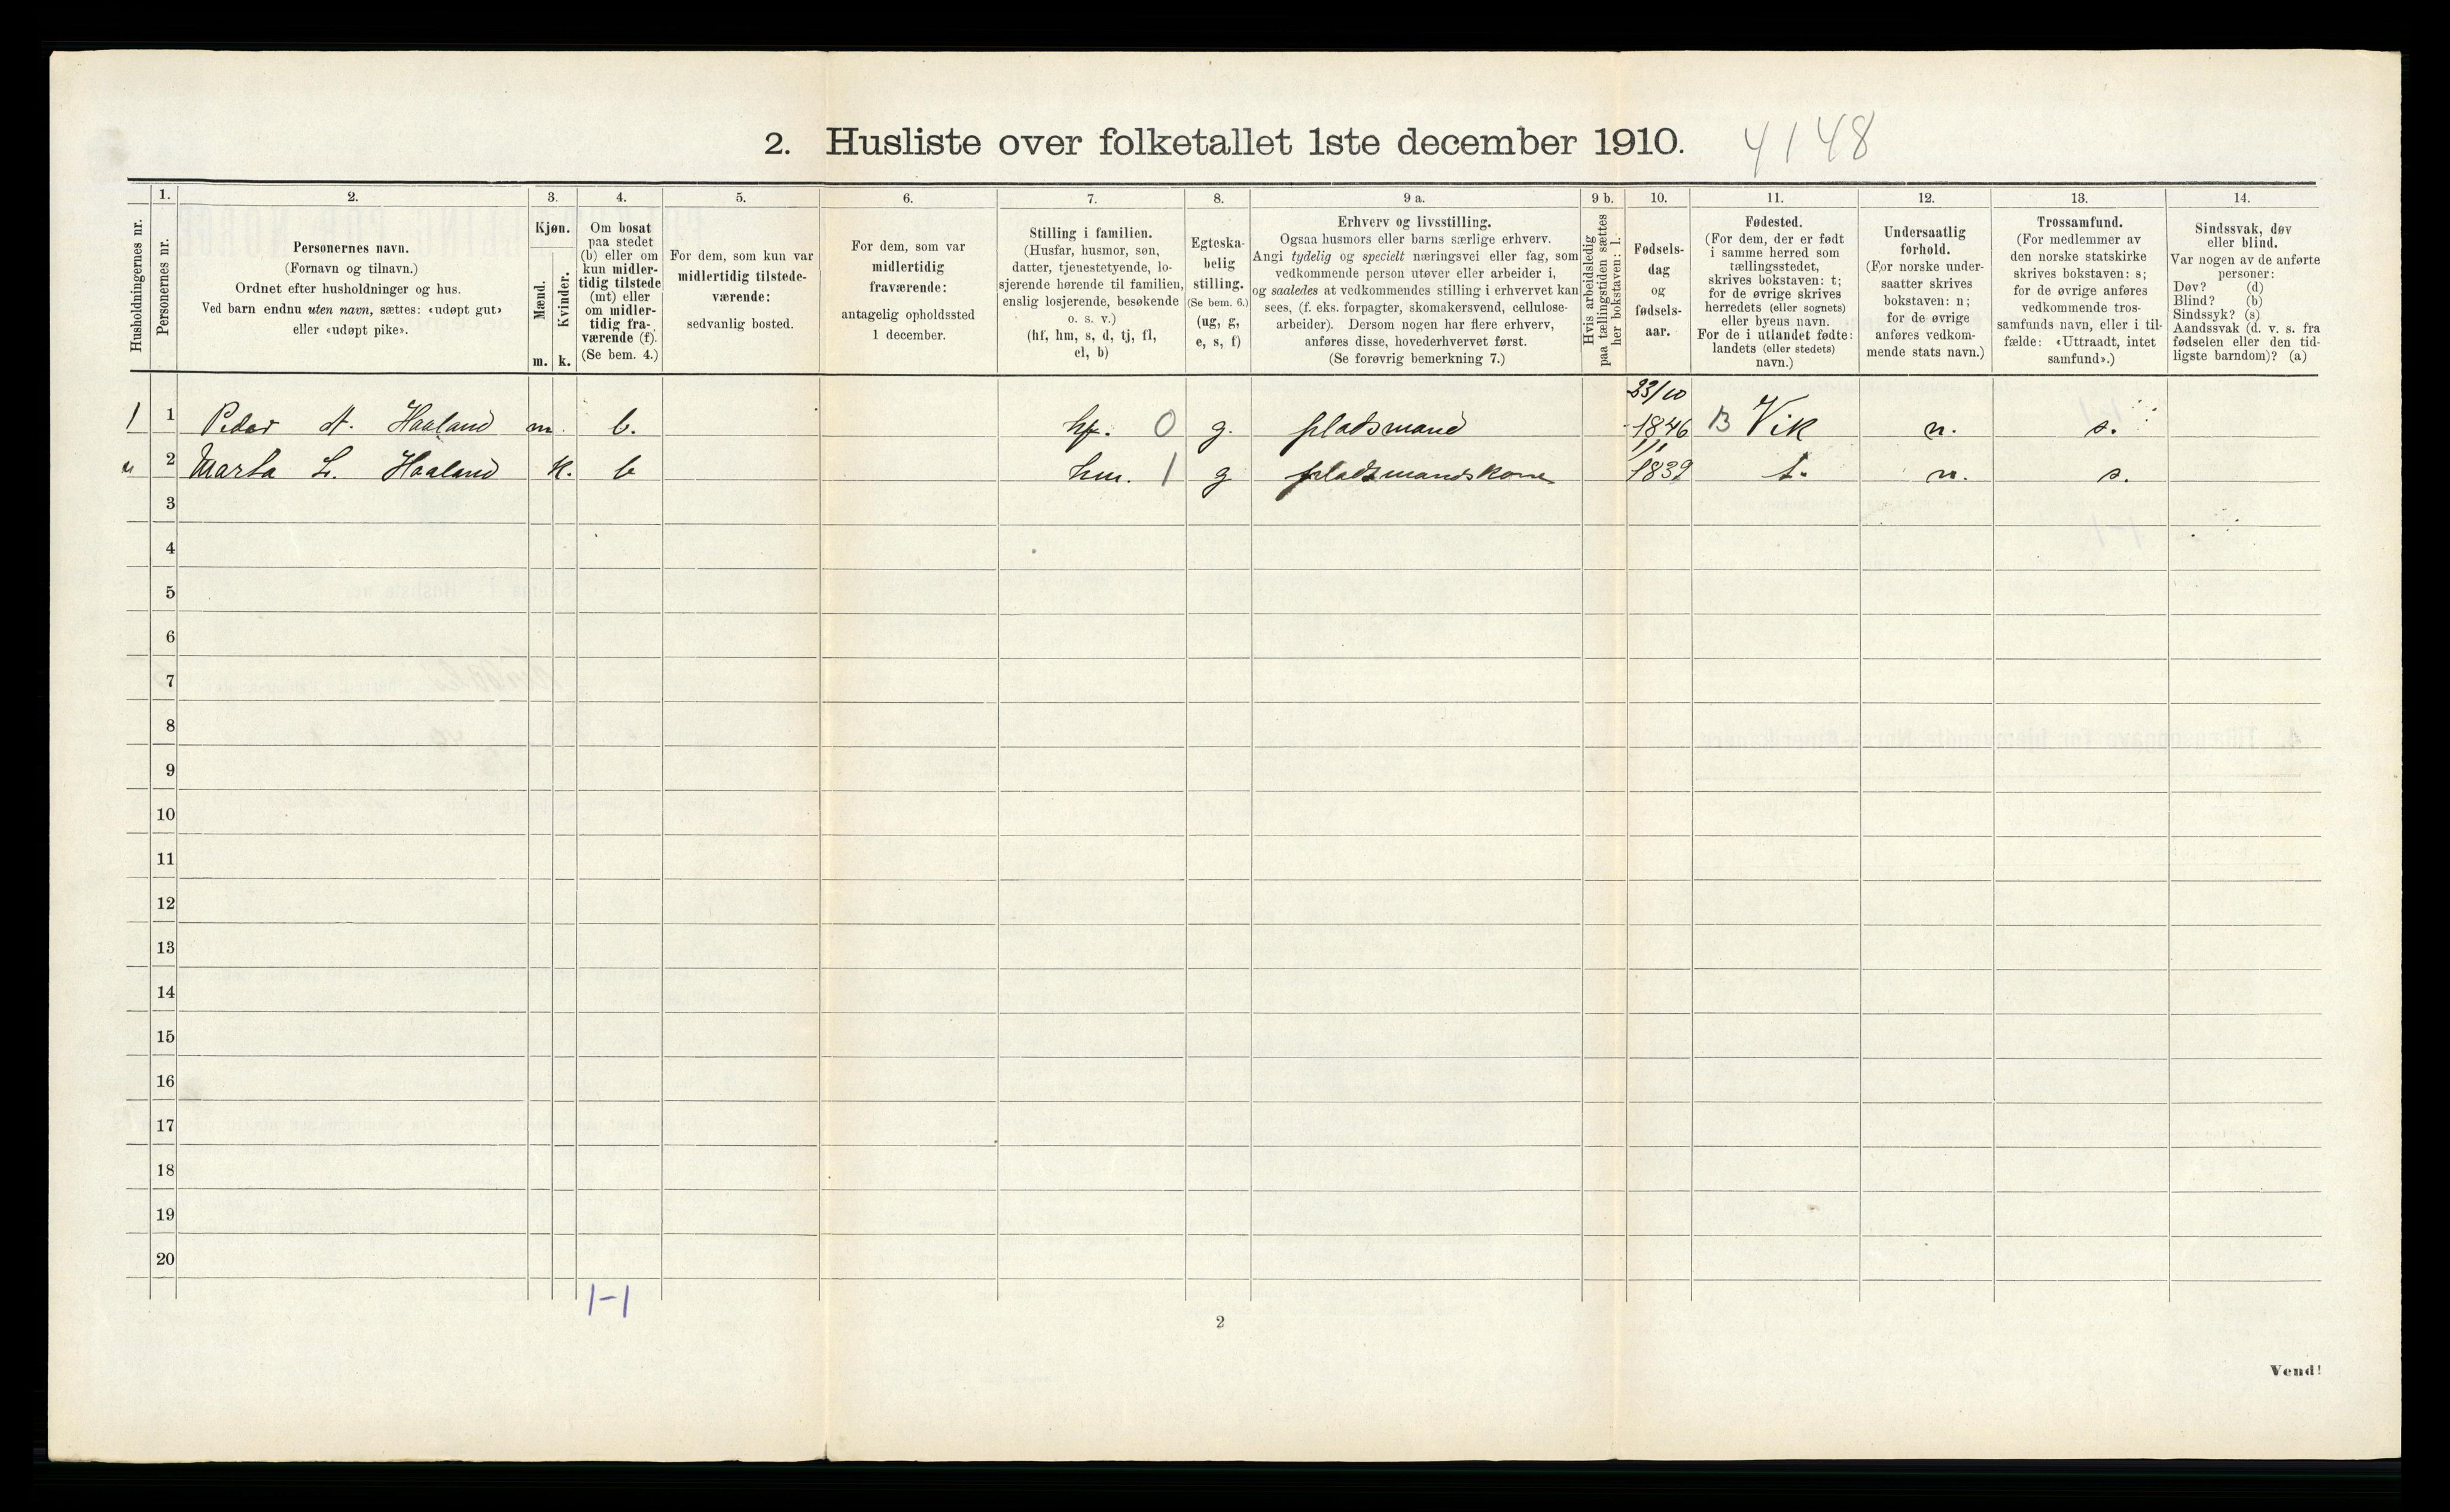 2. Husliste over folketallet 1ste december 1910. 4148
Husholdningernes nr.
1.
Personernes nr.
2.
Personernes navn.
(Fornavn og tilnavn.)
Ordnet efter husholdninger og hus.
Ved barn endnu uten navn, sættes: «udøpt gut»
eller «udøpt pike».
3.
Kjøn.
Mænd.
Kvinder.
m. k.
4.
Om bosat
paa stedet
(b) eller om
kun midler-
tidig tilstede
(mt) eller
om midler-
tidig fra-
værende (f).
(Se bem. 4.)
5.
For dem, som kun var
midlertidig tilstede-
værende:
sedvanlig bosted.
6.
For dem, som var
midlertidig
fraværende:
antagelig opholdssted
1 december.
7.
Stilling i familien.
(Husfar, husmor, søn,
datter, tjenestetyende, lo-
sjerende hørende til familien,
enslig losjerende, besøkende
o. s. v.)
(hf, hm, s, d, tj, fl,
el, b)
8.
Egteska-
belig
stilling.
(Se bem. 6.)
(ug, g,
e, s, f)
9 a.
Erhverv og livsstilling.
Ogsaa husmors eller barns særlige erhverv.
Angi tydelig og specielt næringsvei eller fag, som
vedkommende person utøver eller arbeider i,
og saaledes at vedkommendes stilling i erhvervet kan
sees, (f. eks. forpagter, skomakersvend, cellulose-
arbeider). Dersom nogen har flere erhverv,
anføres disse, hovederhvervet først.
(Se forøvrig bemerkning 7.)
9 b.
Hvis arbeidsledig
paa tællingstiden sættes
her bokstaven: l.
10.
Fødsels-
dag
og
fødsels-
aar.
11.
Fødested.
(For dem, der er født
i samme herred som
tællingsstedet,
skrives bokstaven: t;
for de øvrige skrives
herredets (eller sognets)
eller byens navn.
For de i utlandet fødte:
landets (eller stedets)
navn.)
12.
Undersaatlig
forhold.
(For norske under-
saatter skrives
bokstaven: n;
for de øvrige
anføres vedkom-
mende stats navn.)
13.
Trossamfund.
(For medlemmer av
den norske statskirke
skrives bokstaven: s;
for de øvrige anføres
vedkommende tros-
samfunds navn, eller i til-
fælde: «Uttraadt, intet
samfund».)
14.
Sindssvak, døv
eller blind.
Var nogen av de anførte
personer:
Døv? (d)
Blind? (b)
Sindssyk? (s)
Aandssvak (d. v. s. fra
fødselen eller den tid-
ligste barndom)? (a)
1 1 Peder A. Haaland m. b. hf. 0 g. pladsmand 23/10 1846 B Vik n. s.
2 Marta L. Haaland k. b hm. 1 g pladsmandskone 1/1 1839 t. n. s.
3
4
5
6
7
8
9
10
11
12
13
14
15
16
17
18
19
20
1-1
2
Vend!